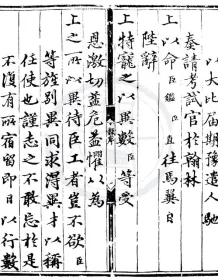 以大比屆期豫遣人馳
奏請考試官於翰林
上以命臣鑑臣直往焉翼日
陛辭
上特寵之以異數臣等受
恩激切益虔益懼以爲
上之所以異待臣工者豈不欲臣
等旌別異同求得異才以稱
任使也謹志之不敢忘於是
不復有所宿留即日以行數